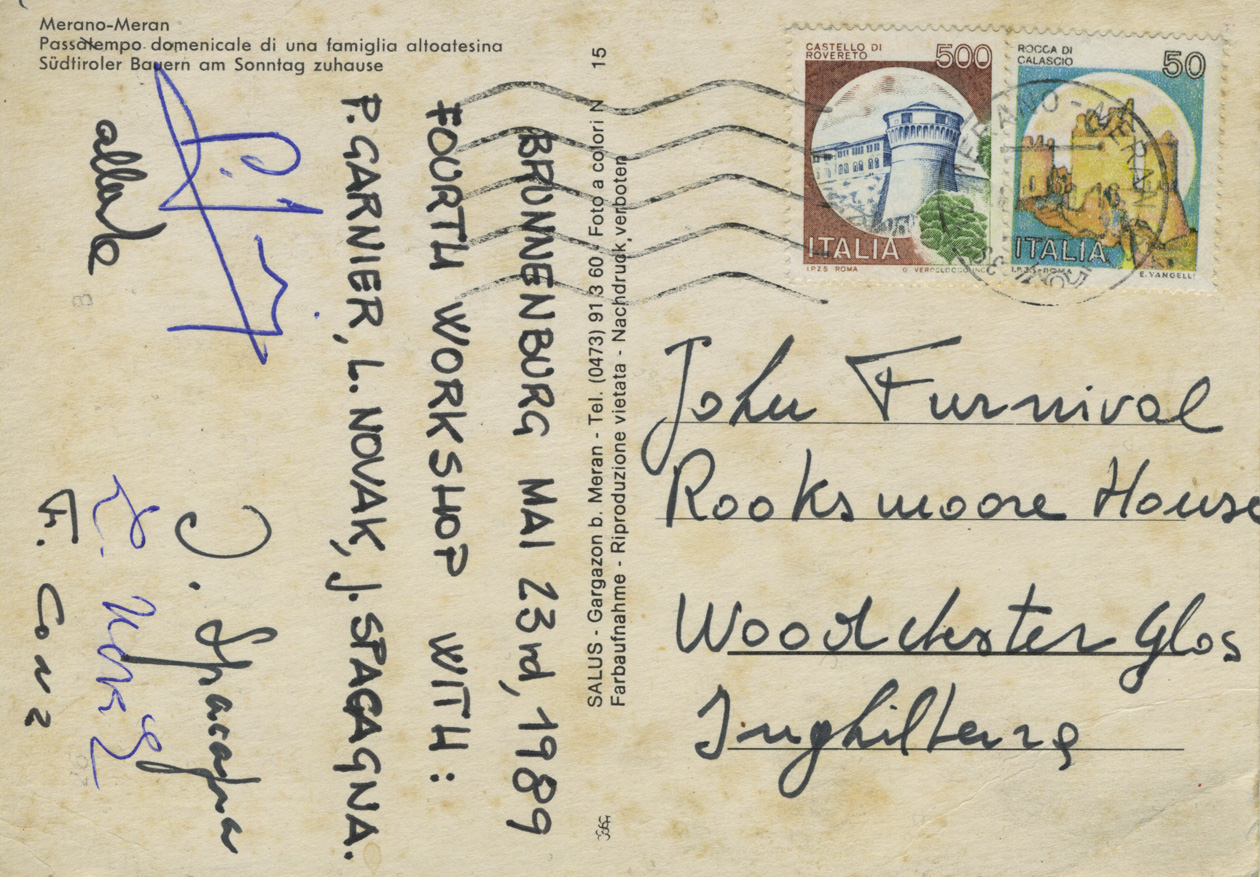 Merano-Meran
Passatempo domenicale di una famiglia altoatesina
Südtiroler Bauern am Sonntag zuhause
BRUNNENBURG MAI 23rd, 1989
FOURTH WORKSHOP WITH:
P. GARNIER, L. NOVAK, J. SPAGAGNA.
J. Spacagna
F. Conz
SALUS - Gargazon b. Meran - Tel. (0473) 91 3 60, Foto a colori N 15
Farbaufnahme - Riproduzione vietata - Nachdruck verboten
CASTELLO DI
ROVERETO
500
ITALIA
I.P.Z.S. ROMA
ROCCA DI
CALASCIO
50
ITALIA
I.P.Z.S. ROMA
E. VANGELLI
MERANO - MERAN
John Furnival
Rooksmoore House
Woodchester Glos
Inghilterra